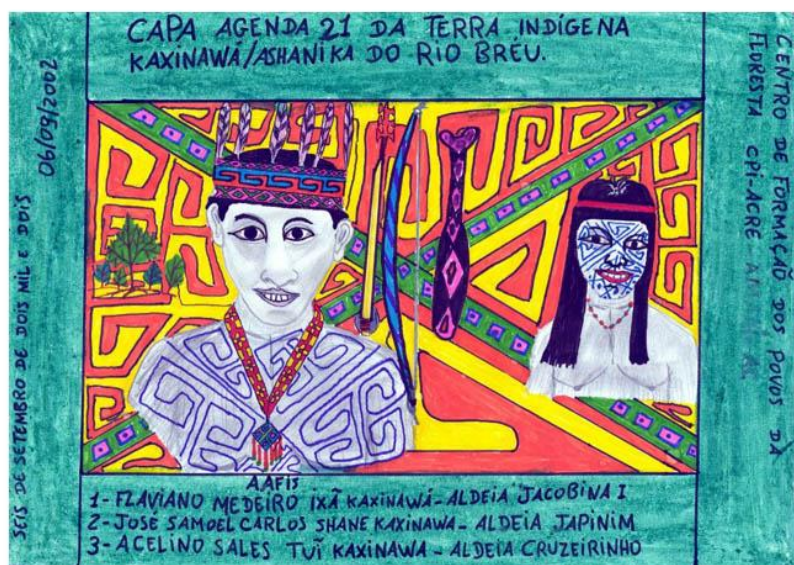 CAPA AGENDA 21 DA TERRA INDÍGENA
KAXINAWÁ/ASHANIKA DO RIO BREU.
06/09/2002
SEIS DE SETEMBRO DE DOIS MIL E DOIS
CENTRO DE FORMAÇÃO DOS POVOS DA
FLORESTA CPI-ACRE
AAFIS
1- FLAVIANO MEDEIRO IXÃ KAXINAWÁ - ALDEIA JACOBINA I
2- JOSE SAMOEL CARLOS SHANE KAXINAWA - ALDEIA JAPINIM
3- ACELINO SALES TUĨ KAXINAWA - ALDEIA CRUZEIRINHO